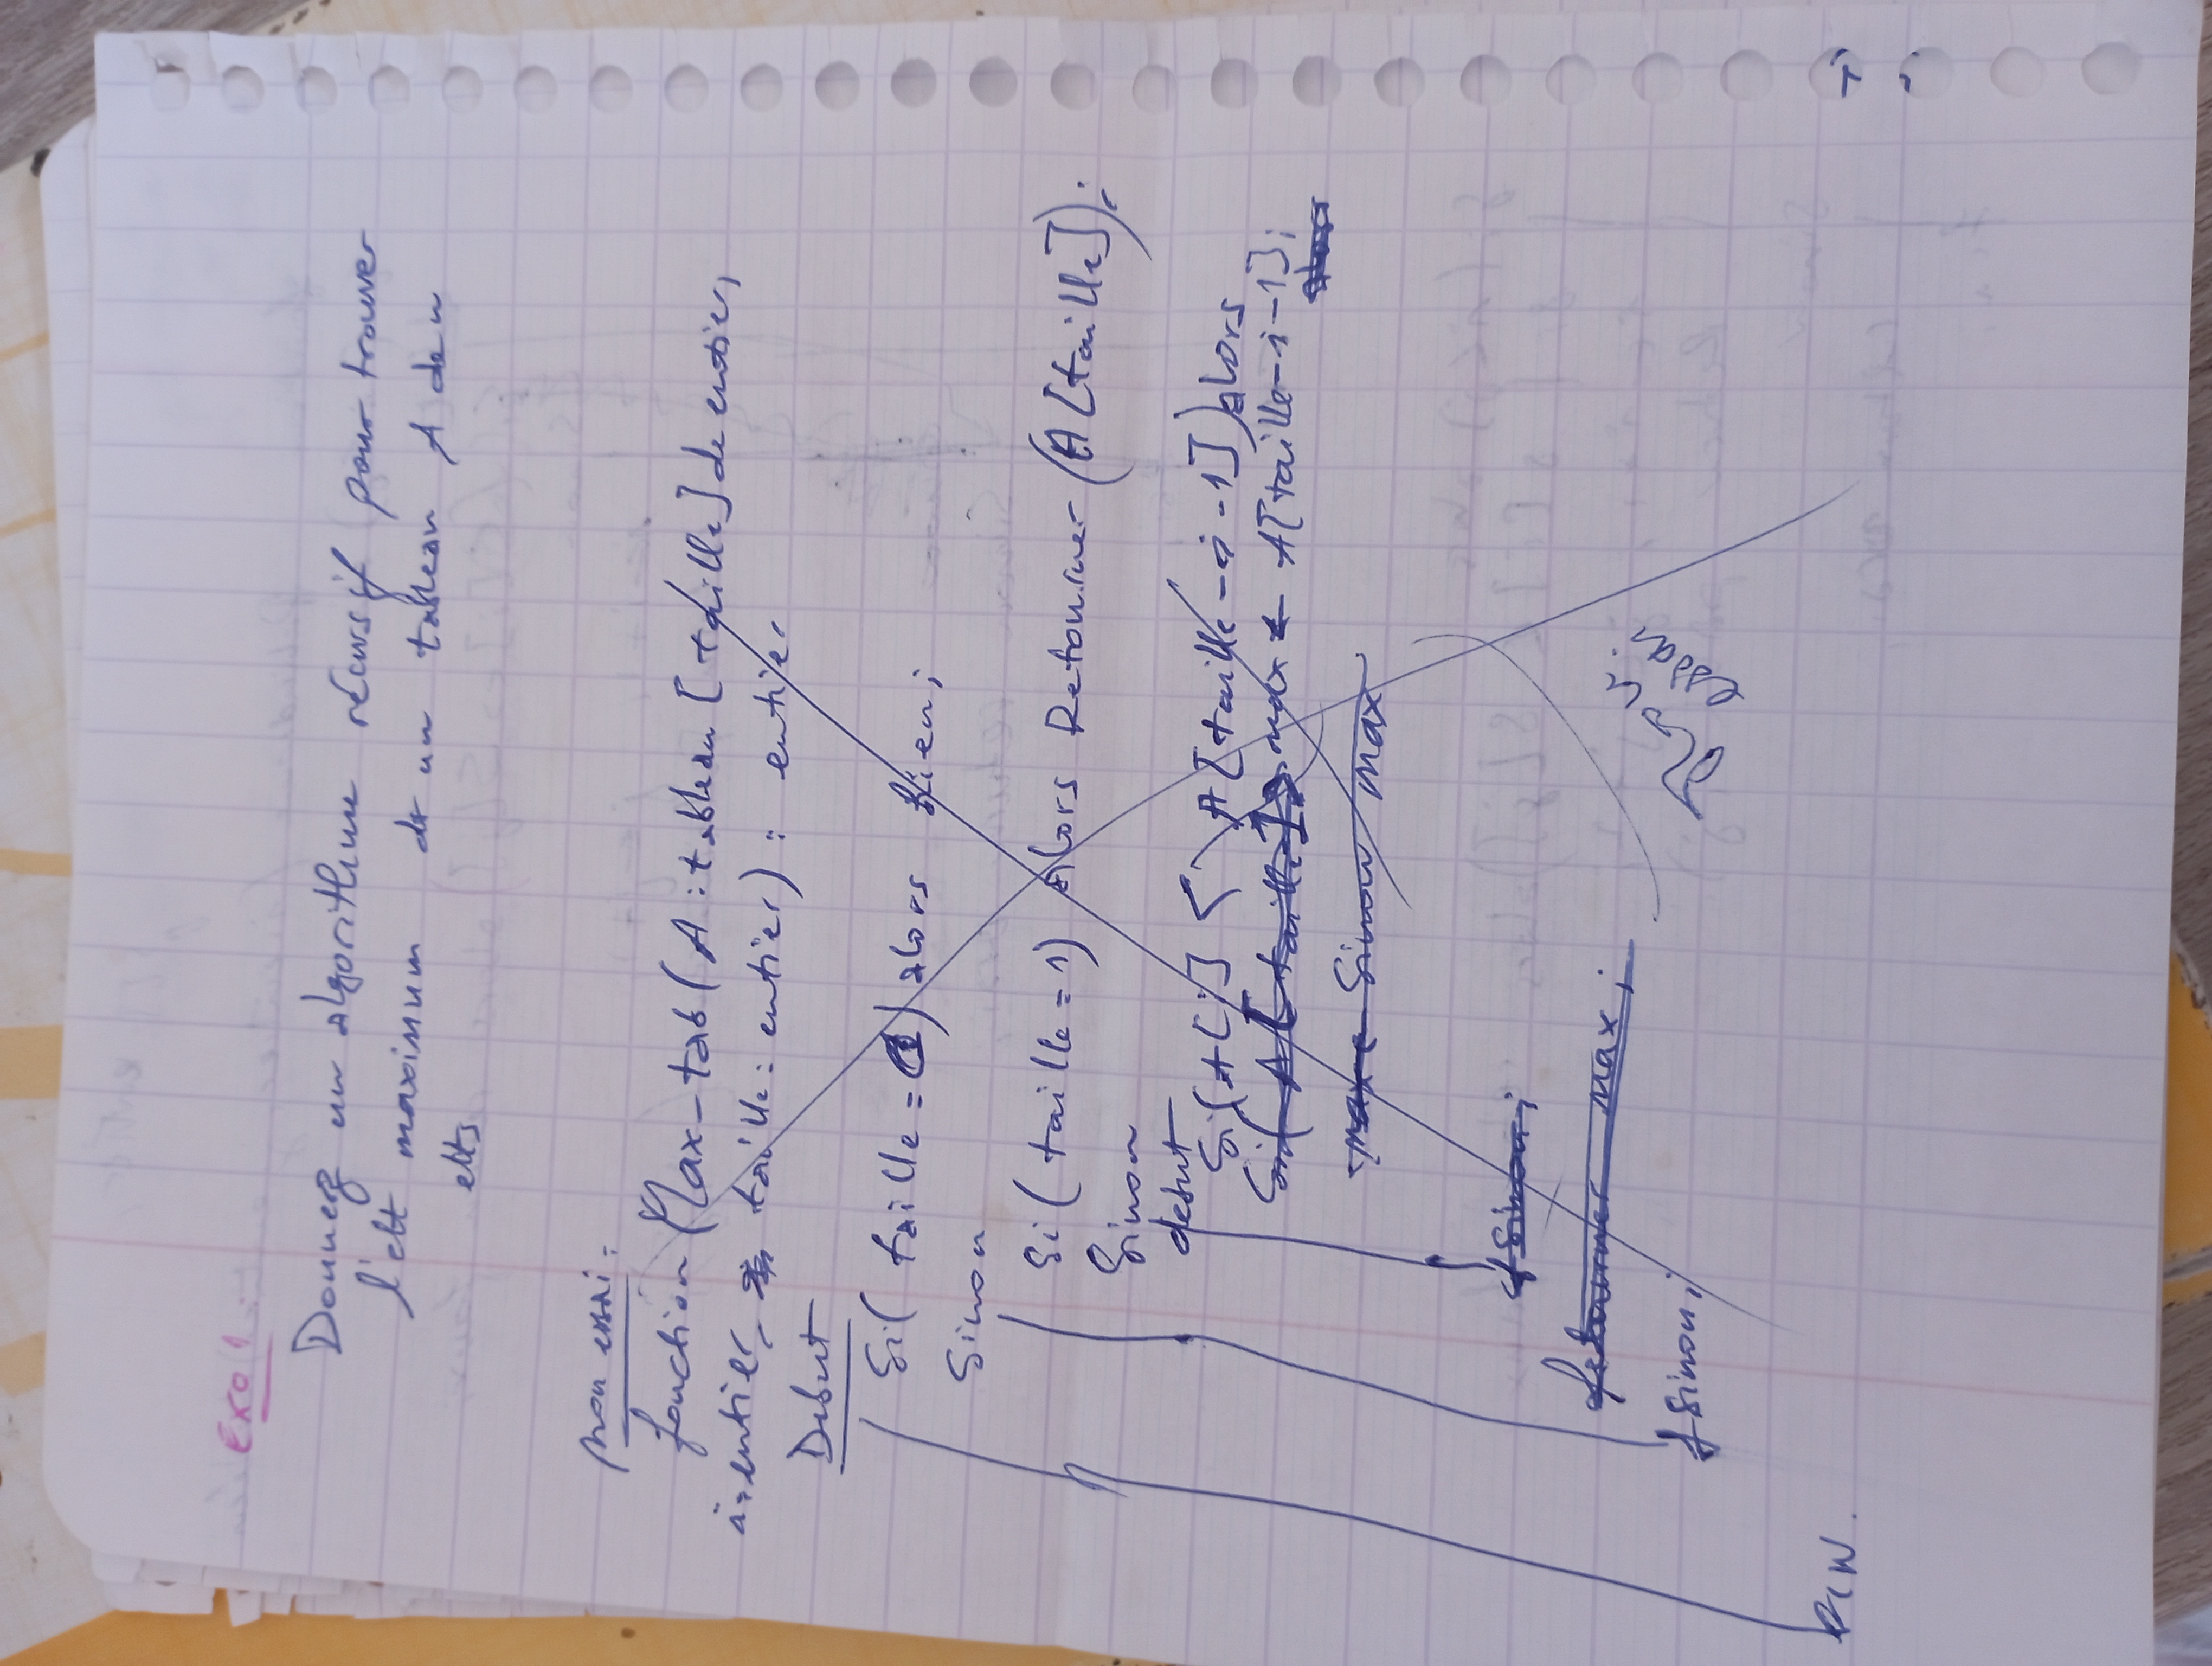 Exo 1 :
Donnerz un algorithme récursif pour trouver
l'elt maximum ds un tableau A de n
elts
Mon essai :
fonction Max-tab ( A : tableau [ taille ] de entier,
i : entier, taille : entier ) : entier
Debut
Si ( taille = 0 ) alors Rien ;
Sinon
Si ( taille = 1 ) alors Retourner ( A [ taille ] ) ;
Sinon
debut
Si ( A [ i ] < A [ taille - i - 1 ] ) alors
Si ( A [ taille ] max ← A [ taille - i - 1 ] ;
alors
max ← Sinon max
fsinon ;
Retourner max ;
Mon
essai
fsinon ;
FIN .